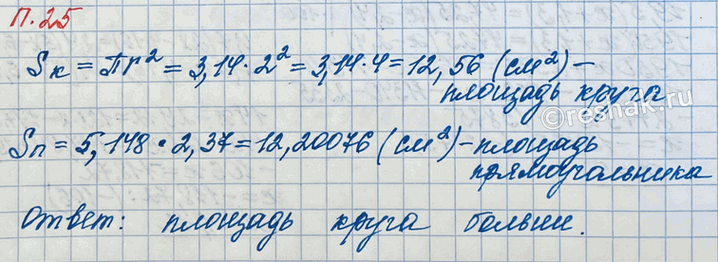 П.25
Sк = πr² = 3,14 · 2² = 3,14 · 4 = 12,56 (см²) –
площадь круга
Sп = 5,148 · 2,37 = 12,20076 (см²) – площадь
прямоугольника
Ответ: площадь круга больши.
©reshak.ru